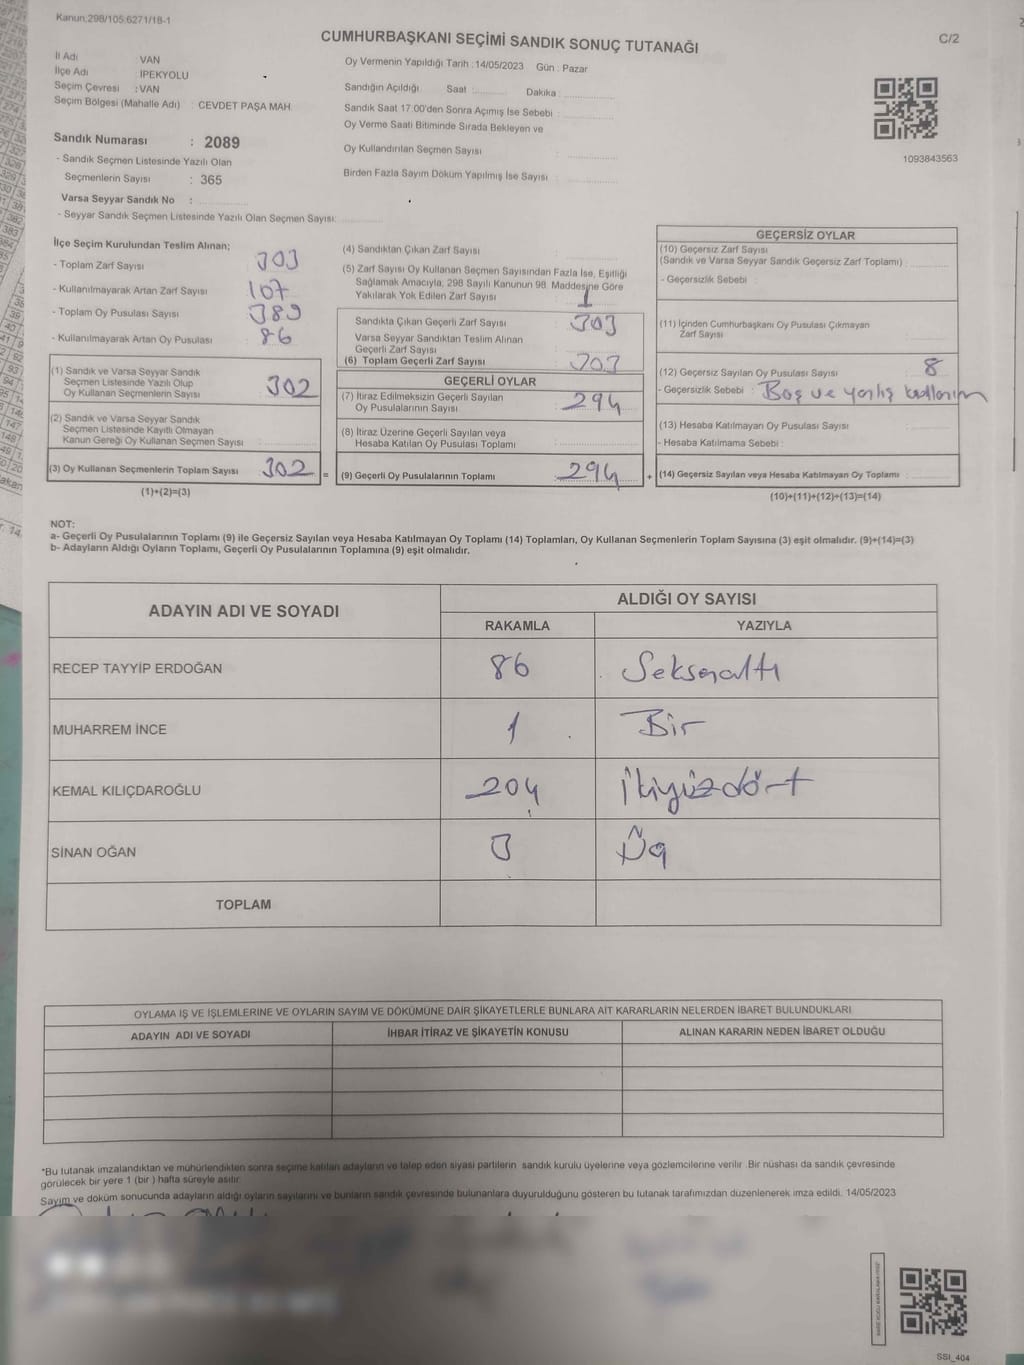 Kanun:298/105;6271/18-1
CUMHURBAŞKANI SEÇİMİ SANDIK SONUÇ TUTANAĞI
C/2
İl Adı VAN
İlçe Adı İPEKYOLU
Seçim Çevresi :VAN
Seçim Bölgesi (Mahalle Adı) : CEVDET PAŞA MAH
Oy Vermenin Yapıldığı Tarih :14/05/2023 Gün : Pazar
Sandığın Açıldığı Saat Dakika :
Sandık Saat 17:00'den Sonra Açımış İse Sebebi :
Oy Verme Saati Bitiminde Sırada Bekleyen ve
Oy Kullandırılan Seçmen Sayısı :
Birden Fazla Sayım Döküm Yapılmış İse Sayısı :
1093843563
Sandık Numarası : 2089
- Sandık Seçmen Listesinde Yazılı Olan
Seçmenlerin Sayısı : 365
Varsa Seyyar Sandık No :
- Seyyar Sandık Seçmen Listesinde Yazılı Olan Seçmen Sayısı:
İlçe Seçim Kurulundan Teslim Alınan;
- Toplam Zarf Sayısı : 303
- Kullanılmayarak Artan Zarf Sayısı : 107
- Toplam Oy Pusulası Sayısı : 389
- Kullanılmayarak Artan Oy Pusulası : 86
(1) Sandık ve Varsa Seyyar Sandık
Seçmen Listesinde Yazılı Olup
Oy Kullanan Seçmenlerin Sayısı 302
(2) Sandık ve Varsa Seyyar Sandık
Seçmen Listesinde Kayıtlı Olmayan
Kanun Gereği Oy Kullanan Seçmen Sayısı :
(3) Oy Kullanan Seçmenlerin Toplam Sayısı 302 =
(1)+(2)=(3)
(4) Sandıktan Çıkan Zarf Sayısı
(5) Zarf Sayısı Oy Kullanan Seçmen Sayısından Fazla İse, Eşitliği
Sağlamak Amacıyla, 298 Sayılı Kanunun 98. Maddesine Göre
Yakılarak Yok Edilen Zarf Sayısı : 1
Sandıkta Çıkan Geçerli Zarf Sayısı 303
Varsa Seyyar Sandıktan Teslim Alınan
Geçerli Zarf Sayısı
(6) Toplam Geçerli Zarf Sayısı 303
GEÇERLİ OYLAR
(7) İtiraz Edilmeksizin Geçerli Sayılan
Oy Pusulalarının Sayısı 294
(8) İtiraz Üzerine Geçerli Sayılan veya
Hesaba Katılan Oy Pusulası Toplamı :
(9) Geçerli Oy Pusulalarının Toplamı 294 +
GEÇERSİZ OYLAR
(10) Geçersiz Zarf Sayısı
(Sandık ve Varsa Seyyar Sandık Geçersiz Zarf Toplamı) :
- Geçersizlik Sebebi :
(11) İçinden Cumhurbaşkanı Oy Pusulası Çıkmayan
Zarf Sayısı
(12) Geçersiz Sayılan Oy Pusulası Sayısı 8
- Geçersizlik Sebebi : Boş ve yanlış kullanım
(13) Hesaba Katılmayan Oy Pusulası Sayısı
- Hesaba Katılmama Sebebi :
(14) Geçersiz Sayılan veya Hesaba Katılmayan Oy Toplamı :
(10)+(11)+(12)+(13)=(14)
NOT:
a- Geçerli Oy Pusulalarının Toplamı (9) ile Geçersiz Sayılan veya Hesaba Katılmayan Oy Toplamı (14) Toplamları, Oy Kullanan Seçmenlerin Toplam Sayısına (3) eşit olmalıdır. (9)+(14)=(3)
b- Adayların Aldığı Oyların Toplamı, Geçerli Oy Pusulalarının Toplamına (9) eşit olmalıdır.
ADAYIN ADI VE SOYADI
ALDIĞI OY SAYISI
RAKAMLA YAZIYLA
RECEP TAYYİP ERDOĞAN 86 Seksenaltı
MUHARREM İNCE 1 Bir
KEMAL KILIÇDAROĞLU 204 İkiyüzdört
SİNAN OĞAN 3 Üç
TOPLAM
OYLAMA İŞ VE İŞLEMLERİNE VE OYLARIN SAYIM VE DÖKÜMÜNE DAİR ŞİKAYETLERLE BUNLARA AİT KARARLARIN NELERDEN İBARET BULUNDUKLARI
ADAYIN ADI VE SOYADI İHBAR İTİRAZ VE ŞİKAYETİN KONUSU ALINAN KARARIN NEDEN İBARET OLDUĞU
*Bu tutanak imzalandıktan ve mühürlendikten sonra seçime katılan adayların ve talep eden siyasi partilerin sandık kurulu üyelerine veya gözlemcilerine verilir. Bir nüshası da sandık çevresinde
görülecek bir yere 1 (bir) hafta süreyle asılır.
Sayım ve döküm sonucunda adayların aldığı oyların sayılarını ve bunların sandık çevresinde bulunanlara duyurulduğunu gösteren bu tutanak tarafımızdan düzenlenerek imza edildi. 14/05/2023
SSI_404